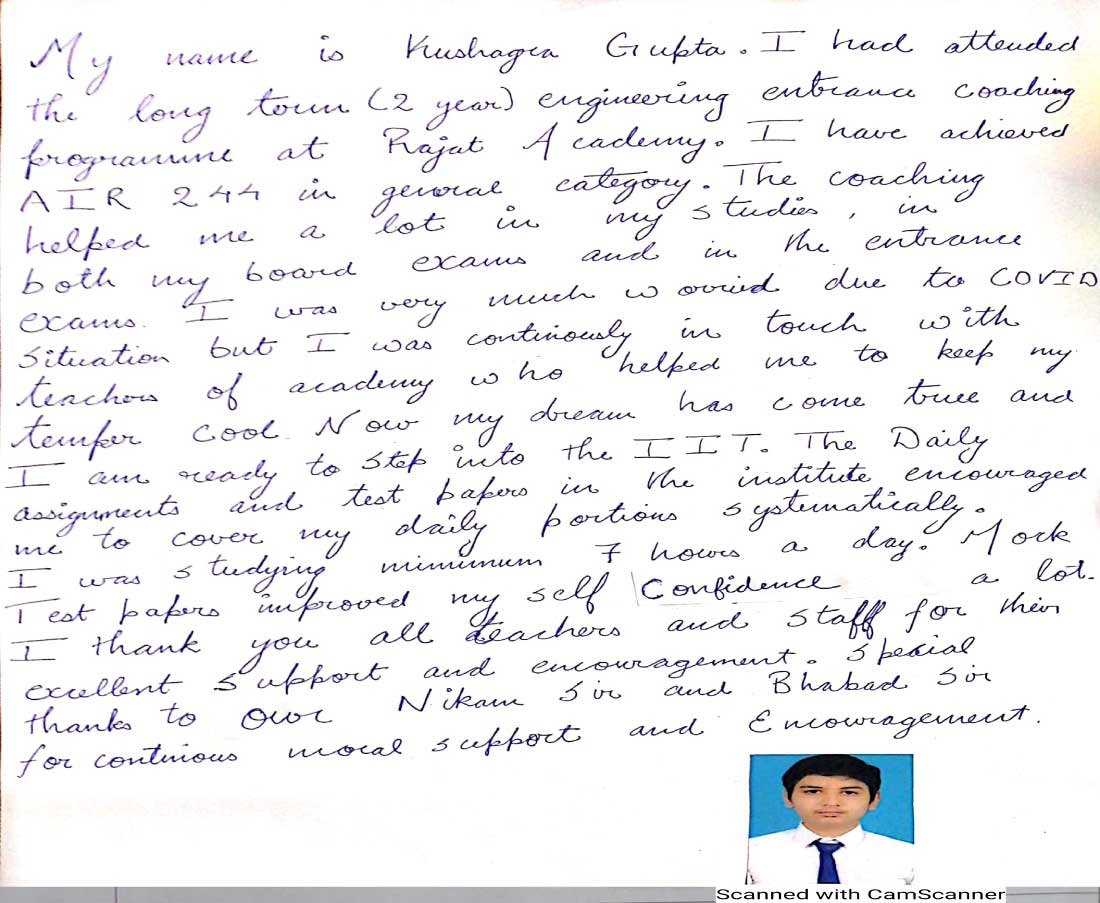 My name is Kushagra Gupta. I had attended
the long term (2 year) engineering entrance coaching
programme at Rajat Academy. I have achieved
AIR 244 in general category. The coaching
helped me a lot in my studies, in
both my board exams and in the entrance
exams. I was very much worried due to COVID
situation but I was continously in touch with
teachers of academy who helped me to keep my
temper cool. Now my dream has come true and
I am ready to step into the IIT. The Daily
assignments and test papers in the institute encouraged
me to cover my daily portions systematically.
I was studying minimum 7 hours a day. Mock
Test papers improved my self Confidence a lot.
I thank you all teachers and staff for their
excellent support and encouragement. Special
thanks to our Nikam Sir and Bhabad Sir
for continious moral support and Encouragement.
Scanned with CamScanner